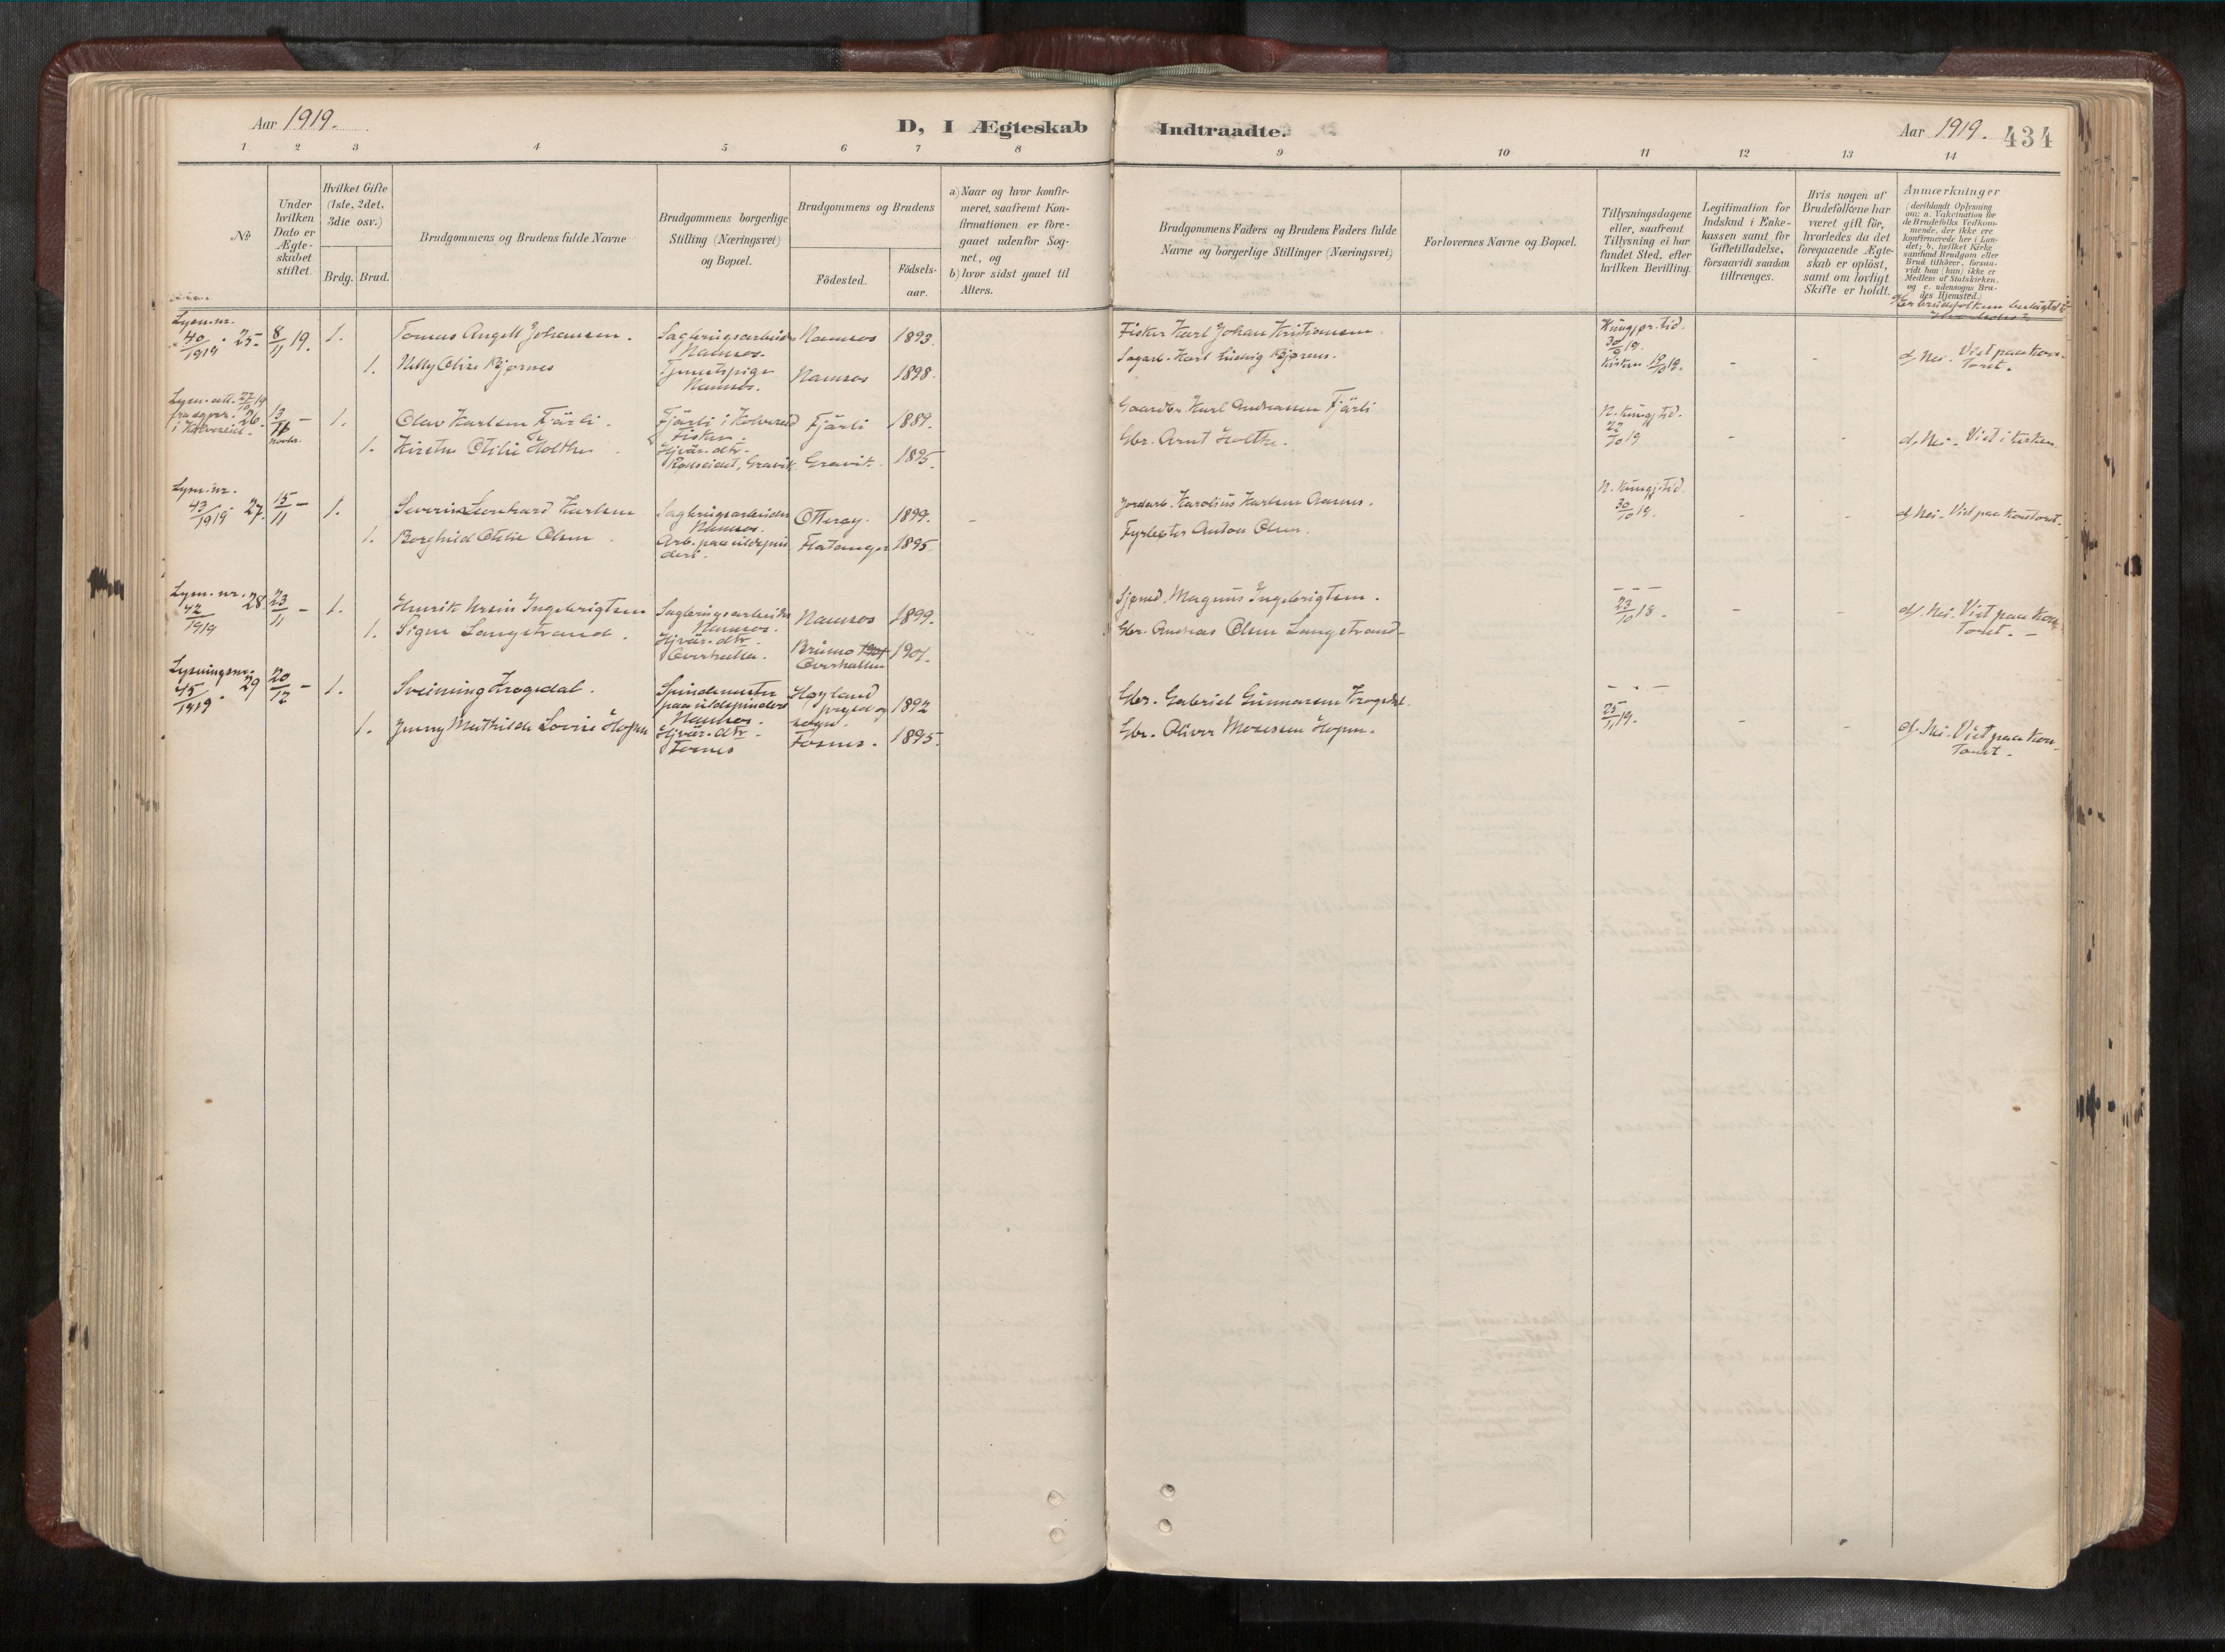 Aar 1919.
D, I Ægteskab Indtraadte.
Aar 1919. 434
1 2 3 4 5 6 7 8 9 10 11 12 13 14
No
Under hvilken Dato er Ægteskabet stiftet.
Hvilket Gifte (1ste, 2det, 3die osv.)
Brdg. Brud.
Brudgommens og Brudens fulde Navne
Brudgommens borgerlige Stilling (Næringsvei) og Bopæl.
Brudgommens og Brudens
Födested.
Födsels-aar.
a) Naar og hvor konfir-
meret, saafremt Kon-
firmationen er fore-
gaaet udenfor Sog-
net, og
b) hvor sidst gaaet til
Alters.
Brudgommens Faders og Brudens Faders fulde
Navne og borgerlige Stillinger (Næringsvei)
Forlovernes Navne og Bopæl.
Tillysningsdagene
eller, saafremt
Tillysning ei har
fundet Sted, efter
hvilken Bevilling.
Legitimation for
Indskud i Enke-
kassen samt for
Giftetilladelse,
forsaavidt saadan
tiltrænges.
Hvis nogen af
Brudefolkene har
været gift för,
hvorledes da det
foregaaende Ægte-
skab er oplöst,
samt om lovligt
Skifte er holdt.
Anmærkninger
(deriblandt Oplysning
om: a. Vakcination for
de Brudefolks Vedkom-
mende, der ikke ere
konfirmerede her i Lan-
det; b. hvilket Kirke-
samfund Brudgom eller
Brud tilhörer, forsaa-
vidt han (hun) ikke er
Medlem af Statskirken,
og c. udensogns Bru-
des Hjemsted.)
Lysn.nr. 40/1919. 25. 8/11 19. 1. Tomas Angell Johansen. Sagbrugsarbeider Namsos. Namsos 1893. Fisker Karl Johan Kristiansen. Kungjør. tid. 30/9 19.
1. Nelly Olise Bjørnes Tjenestpige Namsos. Namsos 1898. Sagarb. Karl Ludvig Bjørnes. Kirken 19/10 19. - - d, Nei. Viet paa Kontoret.
Lysn. att. 27/10 19 fra sgpr. i Kolvereid. 26. 13/11 novbr. - 1. Olav Karlsen Fjärli. Fjärli i Kolvereid Fisker. Fjärli 1889. Gaardbr. Karl Andreassen Fjärli N. Kungj. tid. 22/10 19
1. Kirstine Otilie Holthe. Gravik 1895. Gbr. Arnt Holthe. - - d, Nei. Viet i kirken
Lysn. nr. 43/1919. 27. 15/11 - 1. Severin Leonhard Karlsen Sagbrugsarbeider Namsos. Otterøy. 1899. - Jordarb. Karolius Karlsen Aasnes. N. Kungj. tid. 30/10 19.
1. Borghild Otelie Olsen Arb. paa uldspinderi. Flatanger 1895. Fyrbøter Anton Olsen. - - d, Nei. Viet paa Kontoret.
Lysn. nr. 42/1919 28. 23/11 - 1. Henrik Ursin Ingebrigtsen Sagbrugsarbeider Namsos. Namsos 1899. Sjømd. Magnus Ingebrigtsen. - - - 23/10 18.
1. Signe Langstrand. Hjvær. dtr. Overhalla. Overhallen 1901. Gbr. Andreas Olsen Langstrand - - d, Nei. Viet paa Kontoret.
Lysningsnr. 45/1919. 29 20/12 - 1. Sveinung Krogedal. Spindemester paa uldspinderi Namsos. Høyland 1892 Gbr. Gabriel Gunnarsen Krogedal. - - - 25/11 19.
1. Jenny Mathilde Lovise Hopen Hjvær. dtr. Fosnes Fosnes. 1895. Gbr. Oliver Mosessen Hopen. - - d, Nei. Viet paa Kontoret.